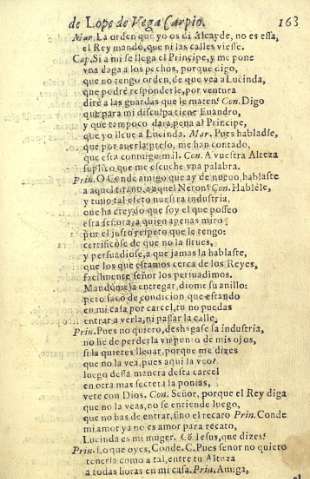 de Lope de Vega Carpio. 163
Mar. La orden que yo os di Alcayde, no es essa,
el Rey mandò, que ni las calles viesse.
Cap. Si a mi se llega el Principe, y me pone
vna daga a los pechos, porque digo,
que no tengo orden, de que vea a Lucinda,
que podrè responderle, por ventura
dirè a las guardas que le maten? Con. Digo
que para mi disculpa tiene Euandro,
y que tampoco darà pena al Principe,
que yo lleue a Lucinda. Mar. Pues habladle,
que por auerla preso, me han contado,
que esta contigo mal. Con. A vuestra Alteza
suplico que me escuche vna palabra.
Prin. O Conde amigo que ay de nueuo, hablaste
a aquel tirano, a aquel Neron? Con. Hablèle,
y tuuo tal efeto nuestra industria,
que ha creydo que soy el que posseo
esta señora, a quien apenas miro
por el justo respeto que le tengo:
certificòse de que no la sirues,
y persuadiòse, a que jamas la hablaste,
que los que estamos cerca de los Reyes,
facilmente señor los persuadimos.
Mandòmela entregar, diome su anillo:
pero saco de condicion que estando
en mi casa por carcel, tu no puedas
entrar a verla, ni passar la calle,
Prin. Pues no quiero, deshagase la industria,
no he de perderla vn punto de mis ojos,
si la quieres lleuar, porque me dizes
que no la vea, pues aqui la veo?
luego dessa manera desta carcel
en otra mas secreta la ponias,
vete con Dios. Con. Señor, porque el Rey diga
que no la veas, no se entiende luego,
que no has de entrar, sino el recato Prin. Conde
mi amor ya no es amor para recato,
Lucinda es mi muger. Cō. Iesus, que dizes?
Prin. Lo que oyes, Conde. C. Pues señor no quiero
tenerla como a tal, entre tu Alteza
a todas horas en mi casa. Prin. Amiga,